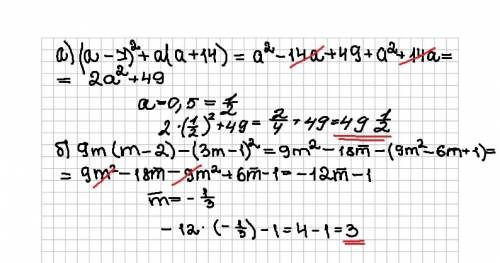 а) (а - 7)² + а(а + 14) = а² - 14а + 49 + а² + 14а =
= 2а² + 49
а = 0,5 = 1/2
2 · (1/2)² + 49 = 2/4 + 49 = 49 1/2
б) 9m (m - 2) - (3m - 1)² = 9m² - 18m - (9m² - 6m + 1) =
= 9m² - 18m - 9m² + 6m - 1 = -12m - 1
m = - 1/3
- 12 · (- 1/3) - 1 = 4 - 1 = 3